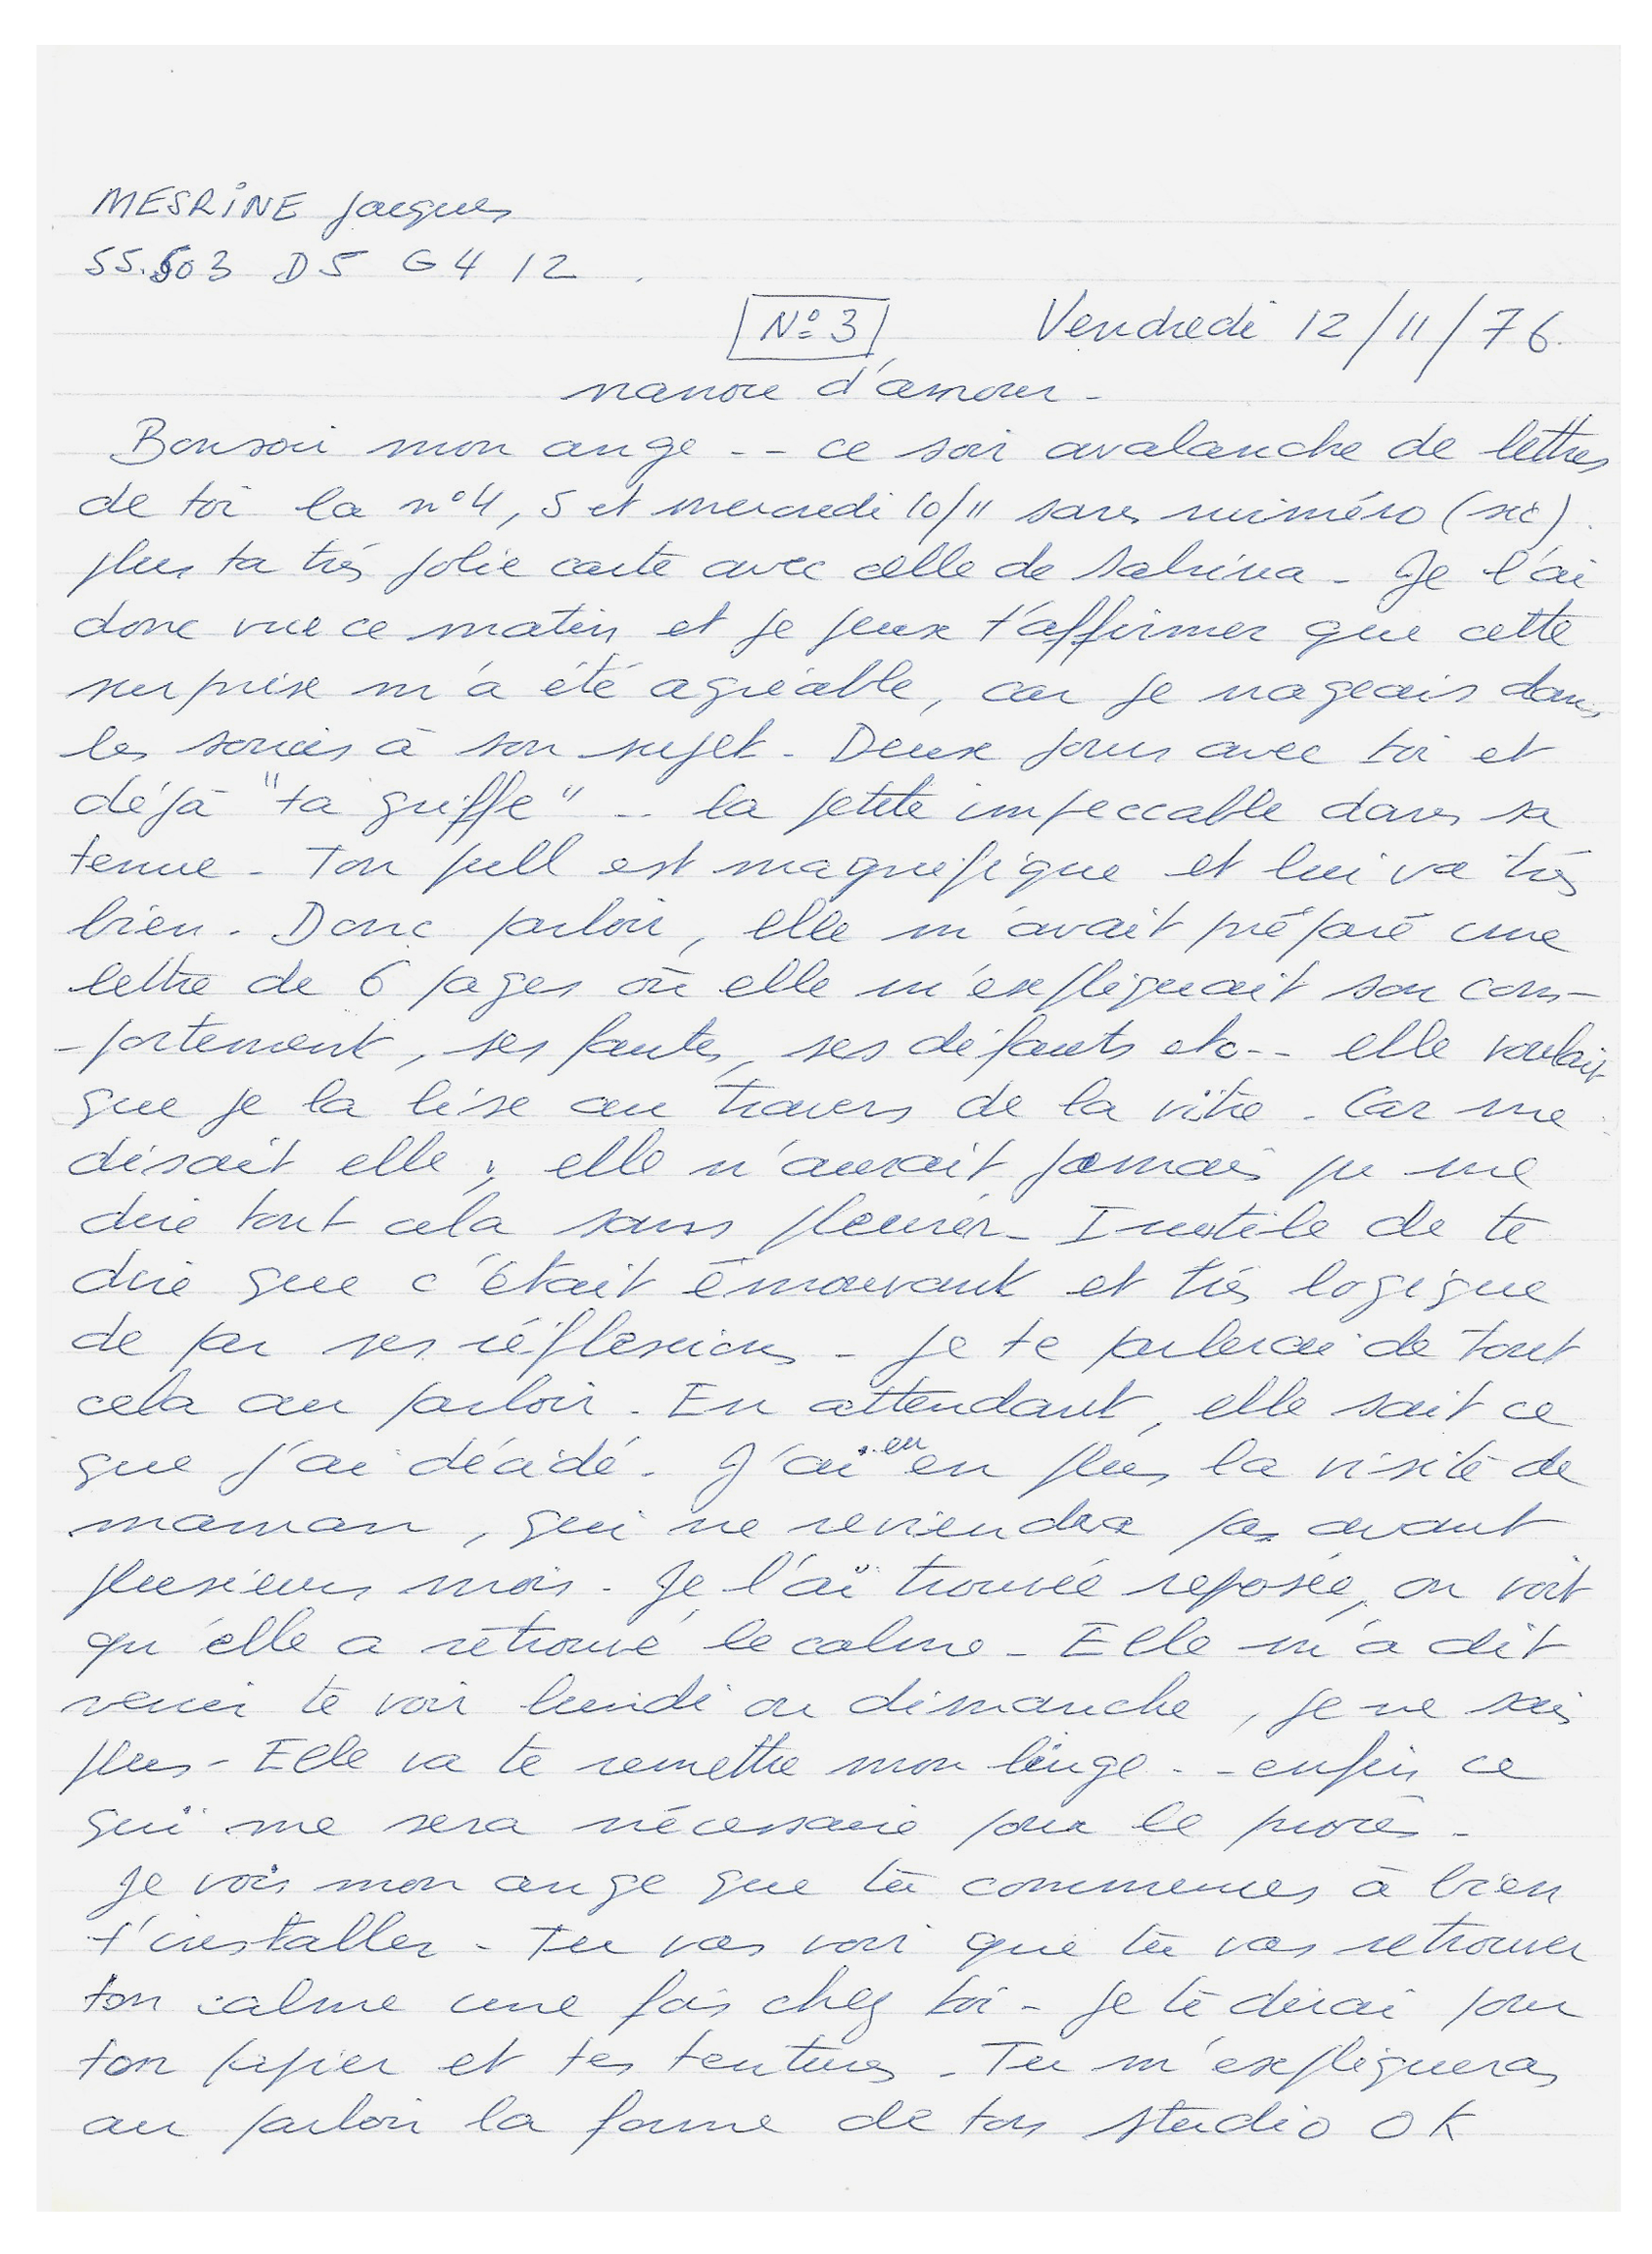 MESRINE Jacques
55.503 D5 G4 12
N° 3 Vendredi 12/11/76.
nanou d'amour -
Bonsoir mon ange -- ce soir avalanche de lettres
de toi la n°4, 5 et mercredi 10/11 sans numéro (sic).
plus ta très jolie carte avec celle de Sabrina - Je l'ai
donc vue ce matin et je peux t'affirmer que cette
surprise m'a été agréable, car je nageais dans
les soucis à son sujet - Deux jours avec toi et
déjà "ta griffe" -- la petite impeccable dans sa
tenue - Ton pull est magnifique et lui va très
bien. Donc parloir, elle m'avait préparé une
lettre de 6 pages où elle m'expliquait son com-
-portement, ses fautes, ses défauts etc-- elle voulait
que je la lise au travers de la vitre. Car me
disait elle, elle n'aurait jamais pu me
dire tout cela sans pleurer - Inutile de te
dire que c'était émouvant et très logique
de par ses réflexions - je te parlerai de tout
cela au parloir. En attendant, elle sait ce
que j'ai décidé. J'ai eu en plus la visite de
maman, qui ne reviendra pas avant
plusieurs mois. Je l'ai trouvée reposée, on voit
qu'elle a retrouvé le calme - Elle m'a dit
venir te voir lundi ou dimanche, je ne sais
plus - Elle va te remettre mon linge -- enfin ce
qui me sera nécessaire pour le procès -
Je vois mon ange que tu commences à bien
t'installer - Tu vas voir que tu vas retrouver
ton calme une fois chez toi - je te dirai pour
ton papier et tes tentures - Tu m'expliqueras
au parloir la forme de ton studio OK